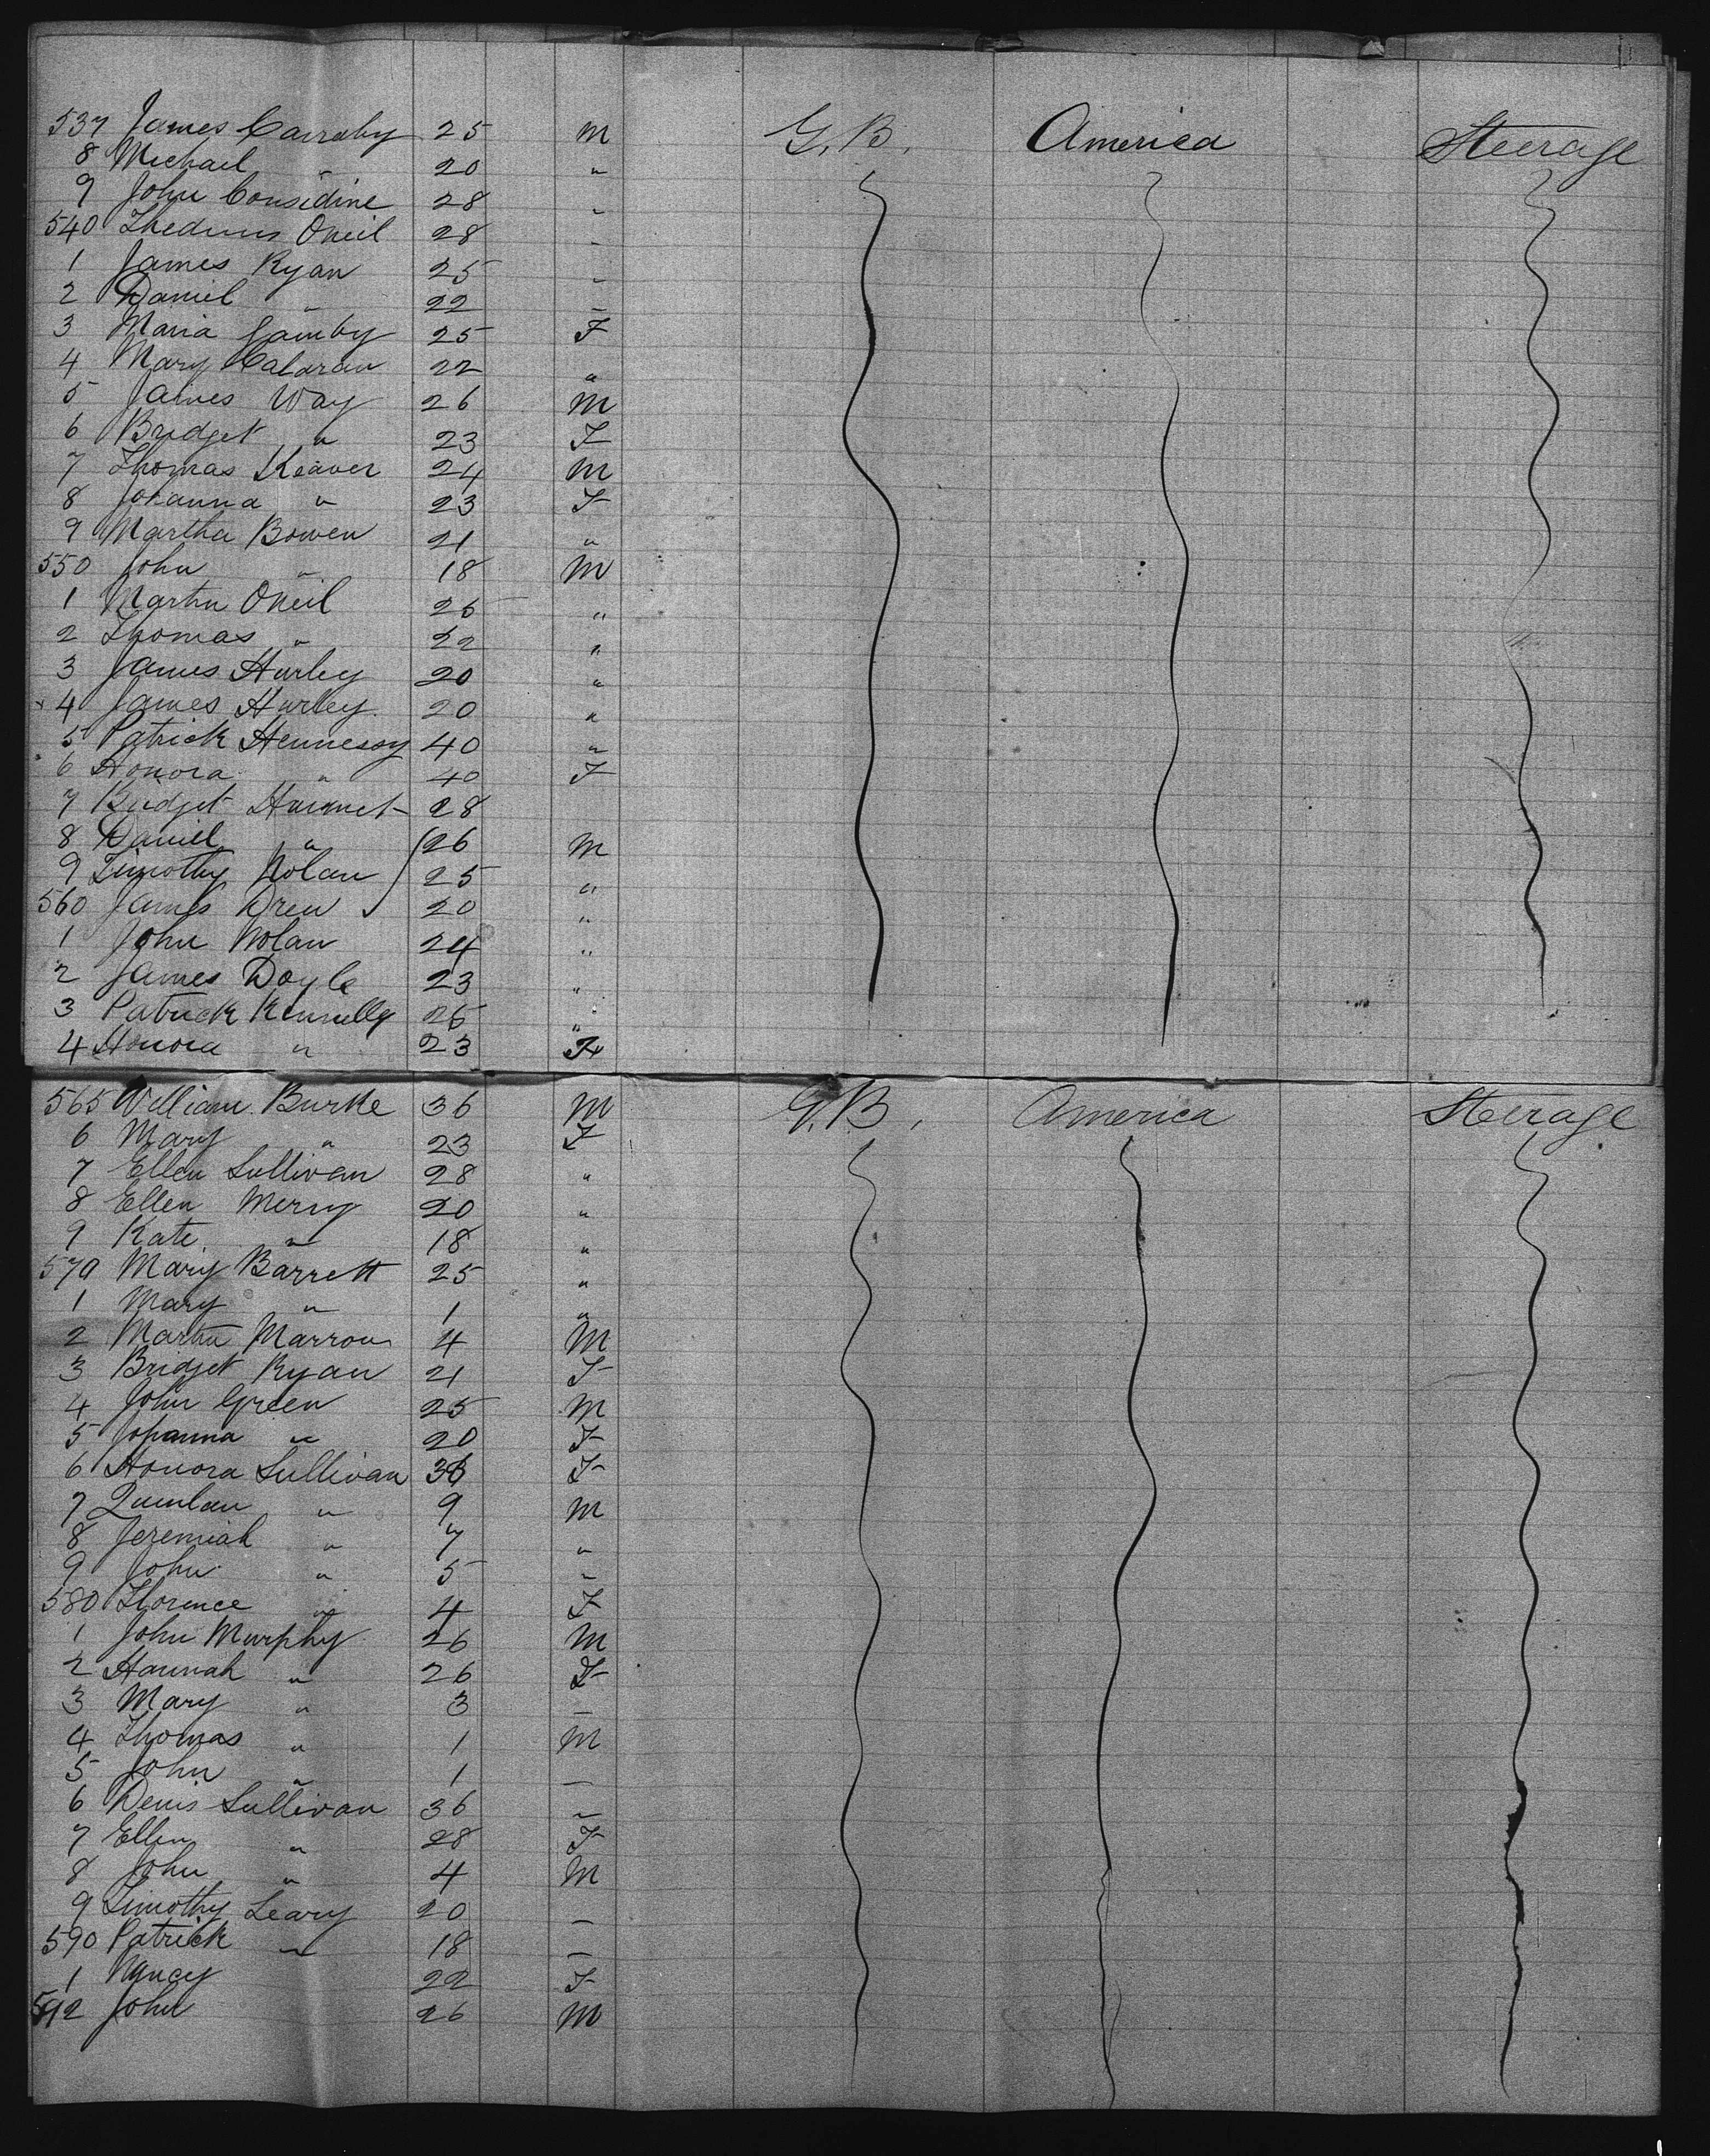 537 James Carraby 25 M G.B. America Steerage
8 Michael " 20 "
9 John Considine 28 "
540 Thedeus Oneil 28 "
1 James Ryan 25 "
2 Daniel " 22 "
3 Maria 25 F
4 Mary 22 "
5 James Way 26 M
6 Bridget " 23 F
7 Thomas Keaver 24 M
8 Johanna " 23 F
9 Martha Bowen 21 "
550 John " 18 M
1 Martin Oneil 26 "
2 Thomas " 22 "
3 James Hurley 20 "
4 James Hurley 20 "
5 Patrick Hennessy 40 "
6 Honora " 40 F
7 Bridget 28
8 Daniel " 26 M
9 Timothy Nolan 25 "
560 James Drew 20 "
1 John Nolan 24 "
2 James Doyle 23 "
3 Patrick Kennelly 26 "
4 Honora " 23 F
565 William Burke 36 M G.B. America Steerage
6 Mary " 23 F
7 Ellen Sullivan 28 "
8 Ellen Merny 20 "
9 Kate " 18 "
570 Mary Barrett 25 "
1 Mary " 1 "
2 Martin Marron 4 M
3 Bridget Ryan 21 F
4 John Green 25 M
5 Johanna " 20 F
6 Honora Sullivan 36 F
7 Quinlan " 9 M
8 Jeremiah " 7 "
9 John " 5 "
580 Florence " 4 F
1 John Murphy 26 M
2 Hannah " 26 F
3 Mary " 3 "
4 Thomas " 1 M
5 John " 1 "
6 Denis Sullivan 36 "
7 Ellen " 28 F
8 John " 4 M
9 Timothy Leary 20 "
590 Patrick " 18 "
1 Nancy 22 F
592 John 26 M